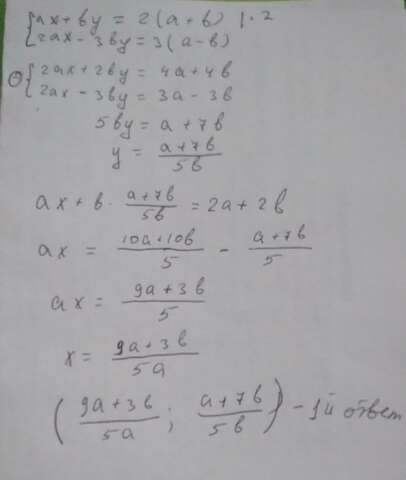 {ax + by = 2(a+b) | · 2
{2ax - 3by = 3(a-b)
⊖ {2ax + 2by = 4a + 4b
{2ax - 3by = 3a - 3b
5by = a + 7b
y = (a+7b)/(5b)
ax + b · (a+7b)/(5b) = 2a + 2b
ax = (10a+10b)/5 - (a+7b)/5
ax = (9a+3b)/5
x = (9a+3b)/(5a)
((9a+3b)/(5a) ; (a+7b)/(5b)) - 1й ответ